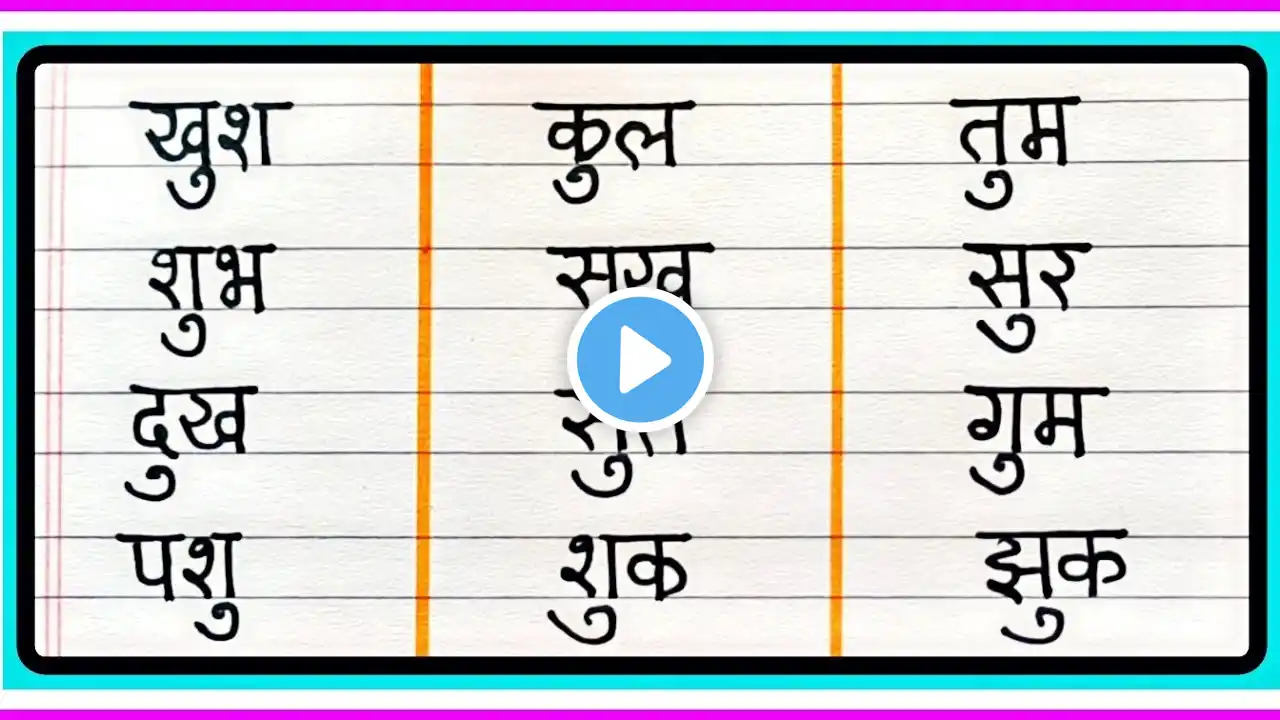 खुश कुल तुम
शुभ सुर
दुख गुम
पशु शुक झुक